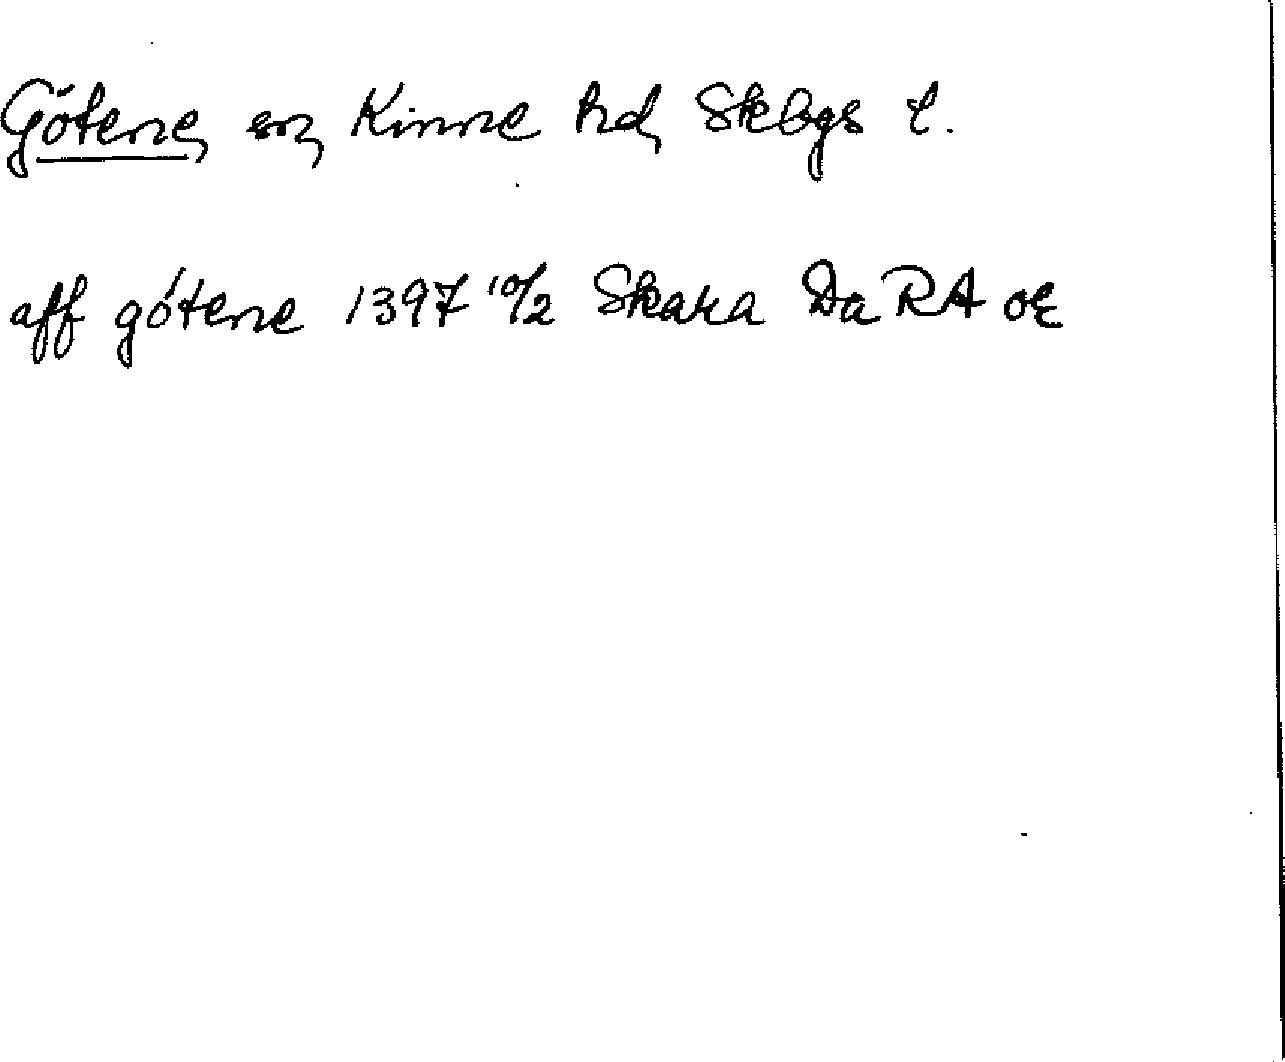 Götene, sn, Kinne hd, Skbgs l.
aff gótene 1397 10/2 Skara DaRA or